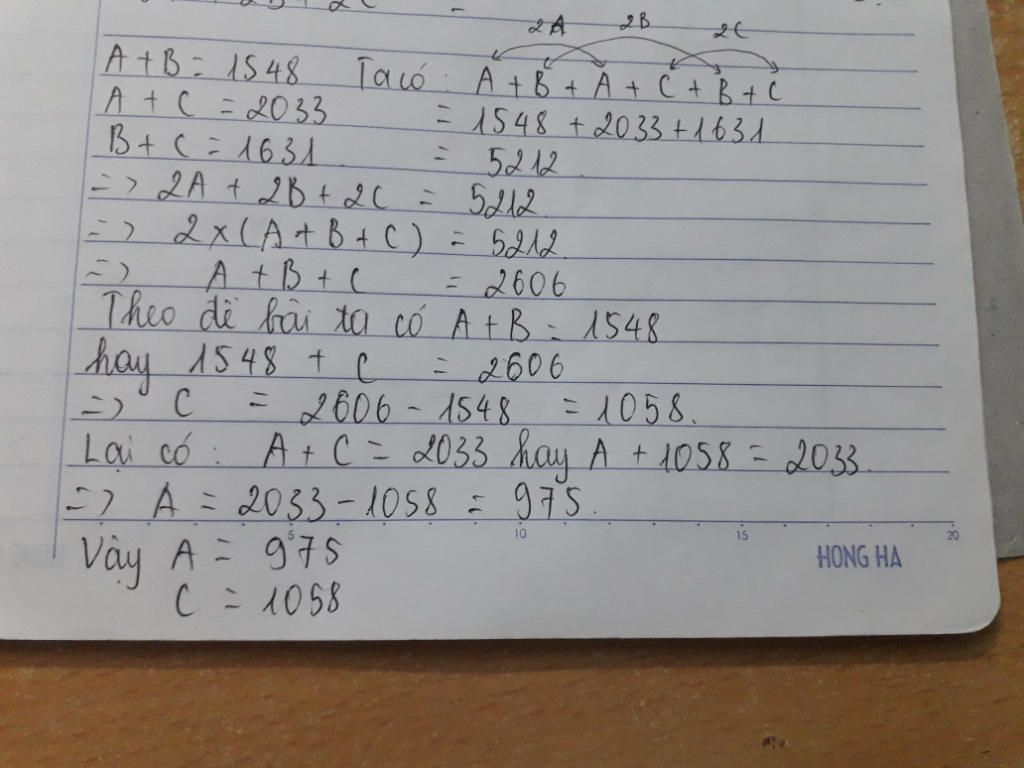 2A 2B 2C
A + B = 1548 Ta có : A + B + A + C + B + C
A + C = 2033 = 1548 + 2033 + 1631
B + C = 1631 = 5212
=> 2A + 2B + 2C = 5212
=> 2 x (A + B + C) = 5212
=> A + B + C = 2606
Theo đề bài ta có A + B = 1548
hay 1548 + C = 2606
=> C = 2606 - 1548 = 1058.
Lại có : A + C = 2033 hay A + 1058 = 2033.
=> A = 2033 - 1058 = 975.
5 10 15 20
Vậy A = 975
HONG HA
C = 1058